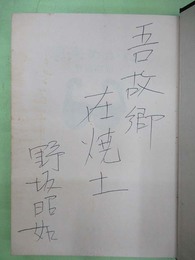 吾故郷
在焼土
野坂昭如